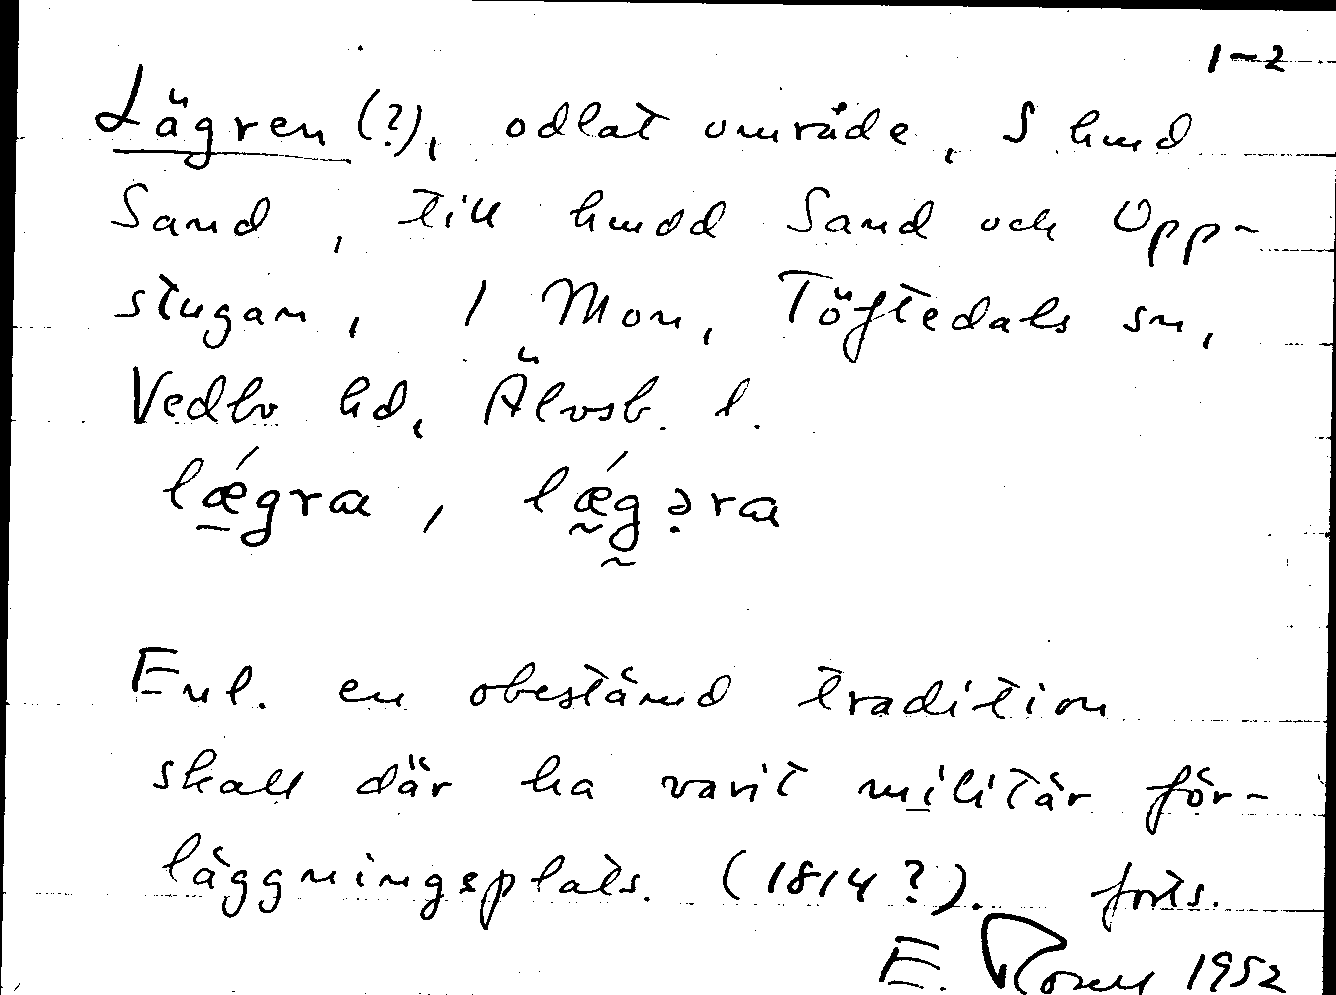 1-2
Lägren (?), odlat område, S hmd
Sand, till hmdd Sand och Opp-
stugan, 1 Mon, Töftedals sn,
Vedbo hd, Älvsb. l.
lǽgra, lǽgəra
Enl. en obestämd tradition
skall där ha varit militär för-
läggningsplats. (1814?). forts.
E. Rosell 1952